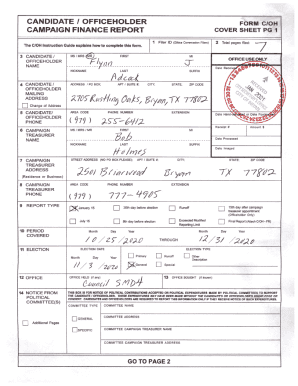 CANDIDATE / OFFICEHOLDER
CAMPAIGN FINANCE REPORT
FORM C/OH
COVER SHEET PG 1
The C/OH Instruction Guide explains how to complete this form.
1 Filer ID (Ethics Commission Filers)
2 Total pages filed:
7
3 CANDIDATE / OFFICEHOLDER NAME
MS / MRS / MR FIRST MI
Flynn J
NICKNAME LAST SUFFIX
Adcock
OFFICE USE ONLY
Date Received
JAN 2021
4 CANDIDATE / OFFICEHOLDER MAILING ADDRESS
Change of Address
ADDRESS / PO BOX; APT / SUITE #; CITY; STATE; ZIP CODE
2705 Rustling Oaks, Bryan, TX 77802
5 CANDIDATE/ OFFICEHOLDER PHONE
AREA CODE PHONE NUMBER EXTENSION
(979) 255-6412
Receipt # Amount $
Date Processed
Date Imaged
6 CAMPAIGN TREASURER NAME
MS / MRS / MR FIRST MI
Bob
NICKNAME LAST SUFFIX
Holmes
7 CAMPAIGN TREASURER ADDRESS
(Residence or Business)
STREET ADDRESS (NO PO BOX PLEASE); APT / SUITE #; CITY; STATE; ZIP CODE
2501 Briarwood Bryan TX 77802
8 CAMPAIGN TREASURER PHONE
AREA CODE PHONE NUMBER EXTENSION
(979) 777-4905
9 REPORT TYPE
January 15 30th day before election Runoff 15th day after campaign treasurer appointment (Officeholder Only)
July 15 8th day before election Exceeded Modified Reporting Limit Final Report (Attach C/OH - FR)
10 PERIOD COVERED
Month Day Year Month Day Year
10/25/2020 THROUGH 12/31/2020
11 ELECTION
ELECTION DATE ELECTION TYPE
Month Day Year
11/3/2020
Primary Runoff Other Description
General Special
12 OFFICE
OFFICE HELD (if any)
Council SMD4
13 OFFICE SOUGHT (if known)
14 NOTICE FROM POLITICAL COMMITTEE(S)
Additional Pages
COMMITTEE TYPE COMMITTEE NAME
GENERAL
COMMITTEE ADDRESS
SPECIFIC
COMMITTEE CAMPAIGN TREASURER NAME
COMMITTEE CAMPAIGN TREASURER ADDRESS
GO TO PAGE 2